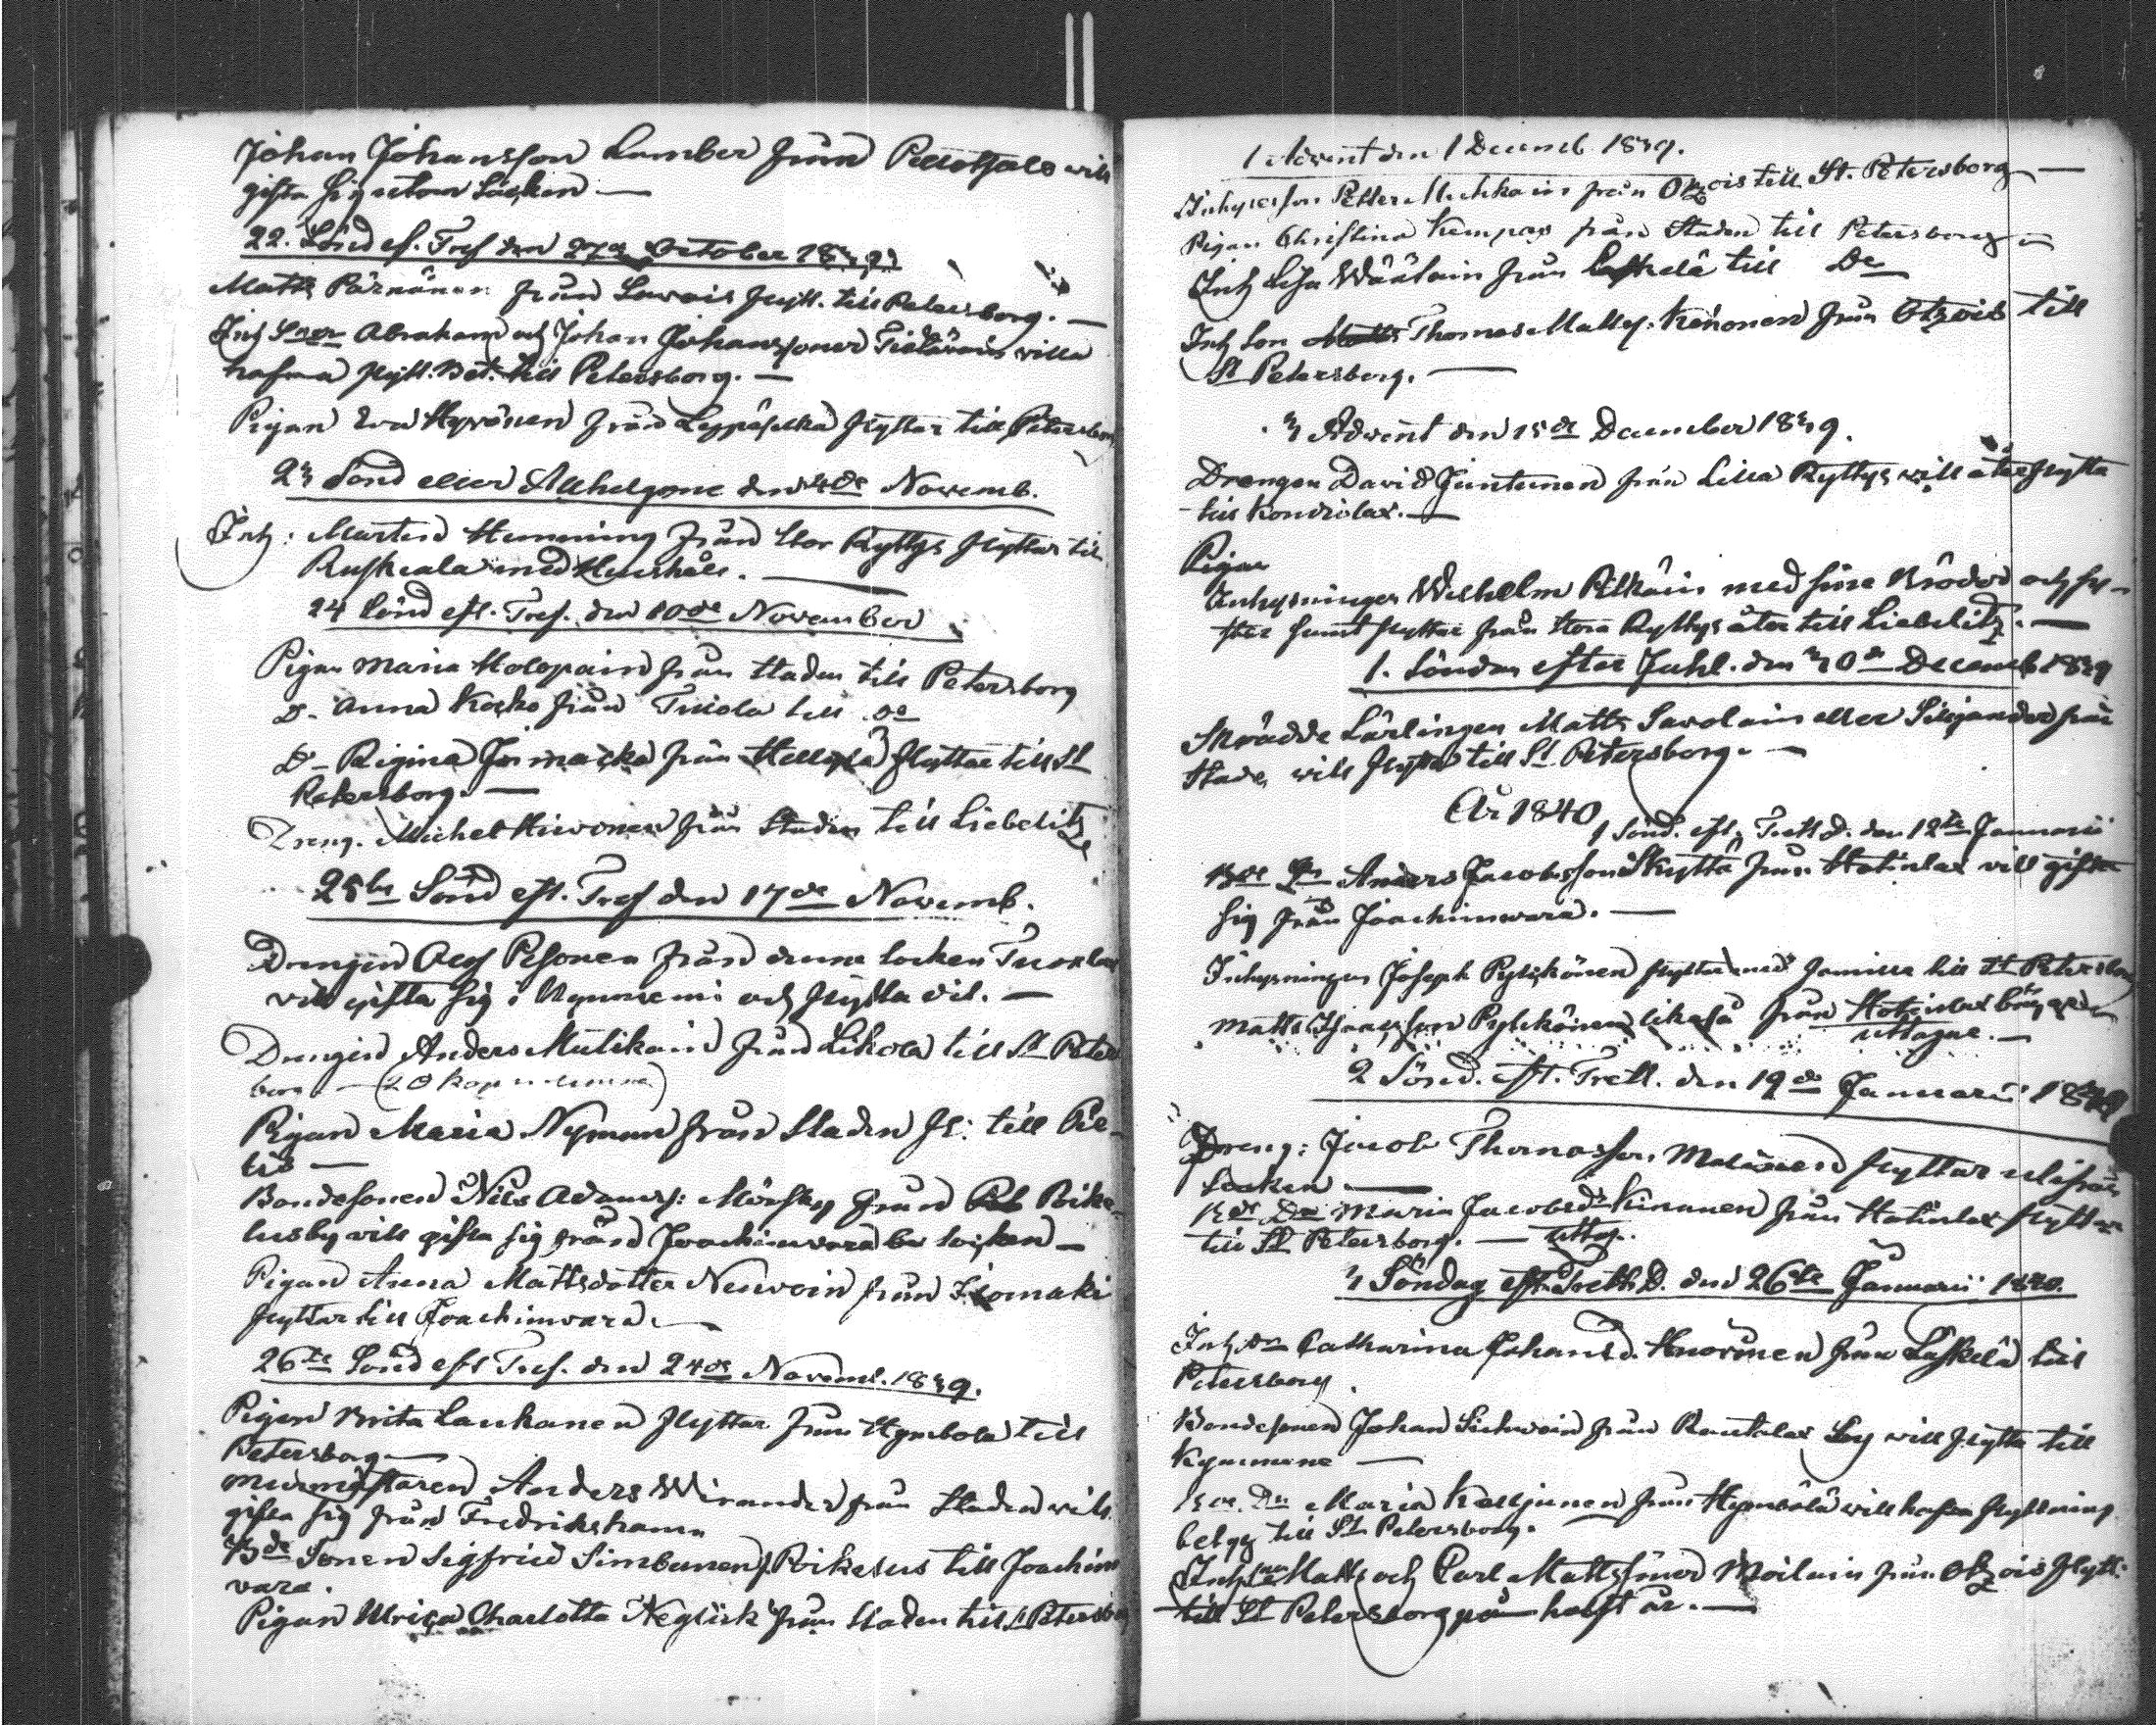 Johan Johansson Lamber från Pellotsalo will
gifta sig utom Socken —
22. Sönd ef. Tref den 27de October 1839
Matts Pärnänen från Lavois flytt. till Petersborg. —
Inh Sner Abraham och Johan Johanssoner willa
hafva flytt. Bet. till Petersborg. —
Pigan Eva Hyvönen från Leppäselkä flyttar till Petersborg
23 Sönd eller Allhelgone den Novemb.
Inh: Mårten Hemming från Stor Ryttys flyttar till
Ruskeala med Hushåll. —
24 Sönd eft. Tref. den 10de November
Pigan Maria Holopain från Staden till Petersborg
D- Anna Kosko från Tuiola till Do
D- Regina från flyttar till St
Petersborg. —
Dreng. Michel Hirvonen från Staden till Liebelitz
25te Sönd eft. Tref den 17de Novemb.
Drengen Olof Pesonen från denna Socken
vill gifta sig i och flytta dit. —
Drengen Anders Mutikain från Likola till St Peters
borg — (20 kop
Pigan Maria Nyman från Staden fl: till Pie-
lis —
Bondesonen Nils Adamss: Mörsky från Poike-
lusby will gifta sig från Joachimvara Socken —
Pigan Anna Mattsdotter Neuvoin från
flyttar till Joachimvara. —
26te Sönd eft Tref. den 24de Novemb. 1839.
Pigan Brita Laukanen flyttar från Hymbola till
Petersborg —
Murmästaren Anders Wirander från Staden will
gifta sig från Fredrikshamn
Bde Sonen Sigfried Simbunen f. Poikelus till Joachim
vara.
Pigan Ulrica Charlotta Neglick från Staden till St Petersborg
1 Advent den 1 Decemb 1839.
Inhysesson Petter Muhkain från Otzois till St. Petersborg —
Pigan Christina Kempas från Staden till Petersborg —
Inh Lisa Wäätäin från Läskelä till Do
Inh Son Matts Thomas Mattss: Kenonen från Otzois till
St Petersborg. —
3 Advent den 15de December 1839.
Drengen David Juntunen från Lilla Ryttys will återflytta
till Kondiolax. —
Pigan
Inhysningen Wilhelm Pitkäin med sina Bröder och sy-
ster samt flyttar från Stora Ryttys åter till Liebelitz. —
1. Söndag efter Juhl. den 30de Decemb 1839
Skrädde Lärlingen Matts Savolain eller Siljander från
Stade, will flytta till St. Petersborg. —
År 1840
1 Sönd. eft. Trett d. den 12te Januarii
Bde Sn Anders Jacobsson Skyttä från Hatinlax vill gifta
sig från Joachimvara. —
Inhysningen Joseph Pylckönen flyttar med familie till St Petersborg
Matts Pylckönen likaså från Hatinlax
uttagne. —
2 Sönd. eft. Trett. den 19de Januarii 1840
Dreng: Jacob Thomasson flyttar
Socken —
Bde Dn Maria Jacobsdr Kinanen från Hatinlax flyttar
till St Petersborg. — uttag.
3 Söndag eft. Trett. D. den 26te Januarii 1840.
Inh dn Catharina Johansd. från Läskelä till
Petersborg.
Bondesonen Johan Sichvoin från Rautalax By will flytta till
Kymmene —
Bde. Dn Maria Kolljunen från Hymbölä will hafva flyttning
betyg till St Petersborg.
Inh Matts och Carl Mattssöner Moilain från Otzois flytt.
till St Petersborg på halft år. —